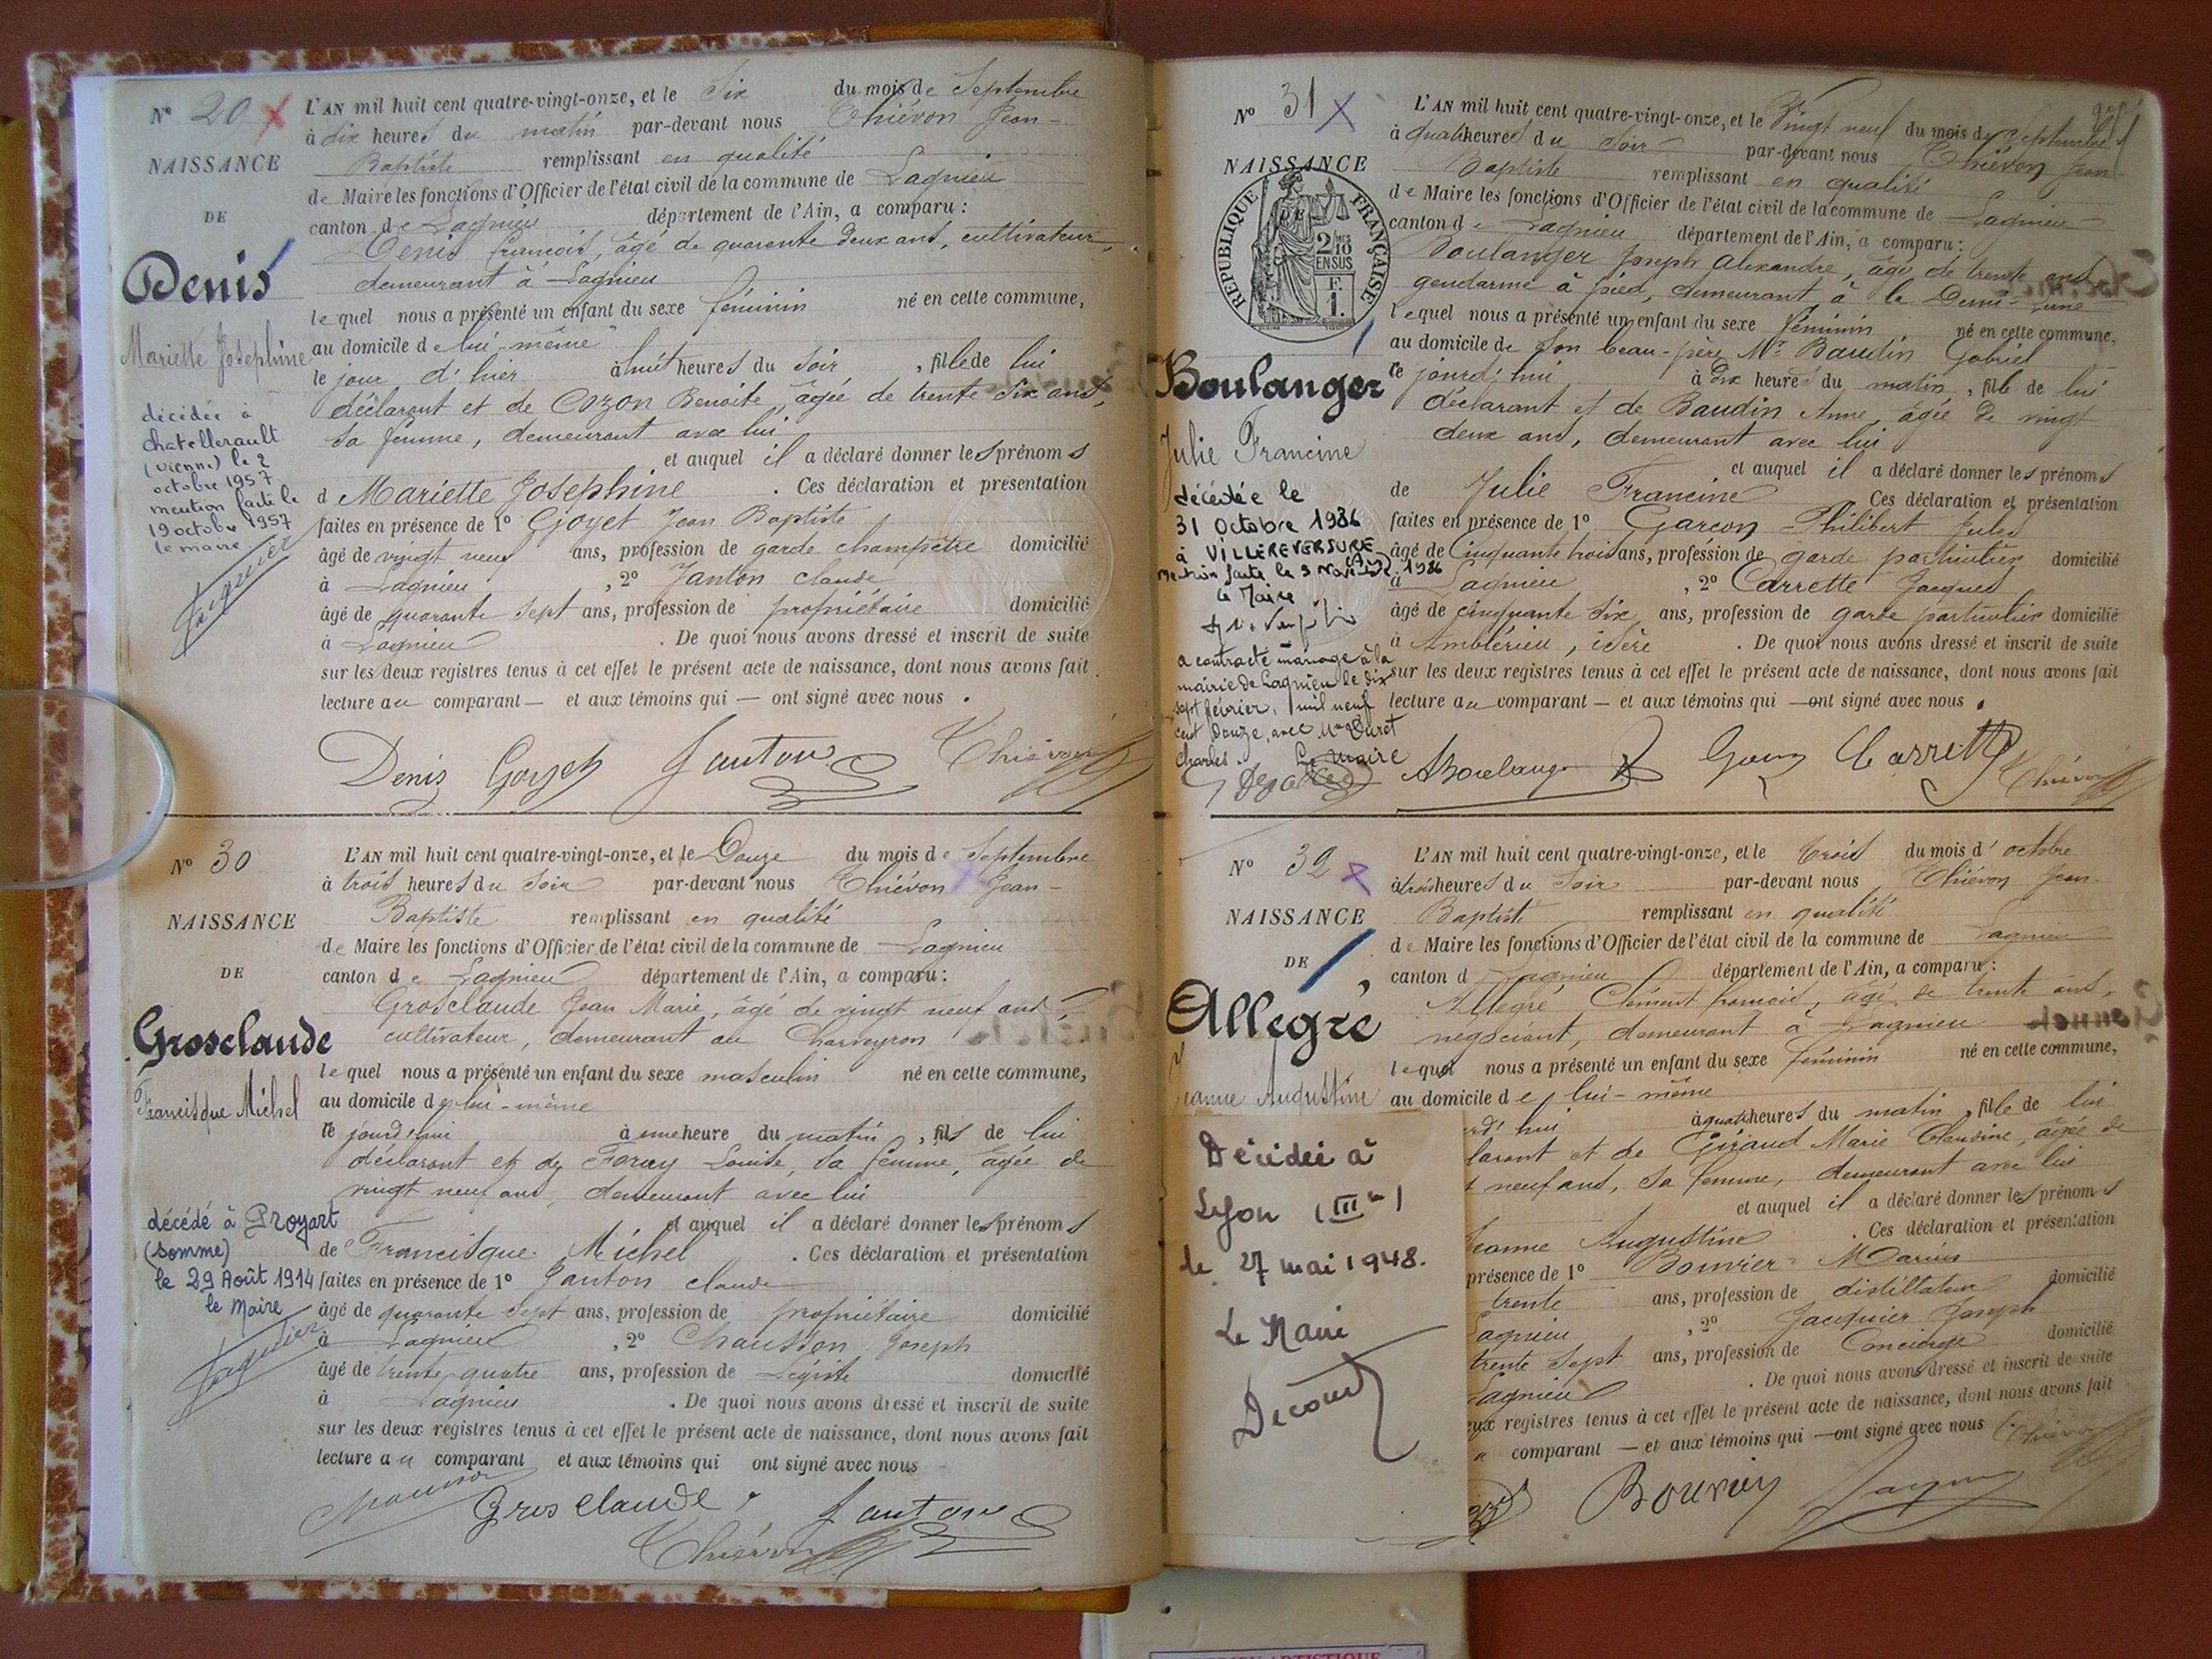 Nº 20
NAISSANCE
DE
Denis
Mariette Josephine
décédée à
chatellerault
(vienne) le 2
octobre 1957
mention faite le
19 octobre 1957
le maire
L'AN mil huit cent quatre-vingt-onze, et le Six du mois de Septembre
à dix heures du matin par-devant nous Thiévon Jean-
Baptiste remplissant en qualité
de Maire les fonctions d'Officier de l'état civil de la commune de Lagnieu
canton de Lagnieu département de l'Ain, a comparu :
Denis François, âgé de quarante deux ans, cultivateur,
demeurant à Lagnieu
lequel nous a présenté un enfant du sexe féminin né en cette commune,
au domicile de lui-même
le jour d'hier à huit heures du soir, fille de lui
déclarant et de Cozon Benoite, âgée de trente six ans,
sa femme, demeurant avec lui
et auquel il a déclaré donner les prénoms
d Mariette Josephine. Ces déclaration et présentation
faites en présence de 1º Goyet Jean Baptiste
âgé de vingt neuf ans, profession de garde champêtre domicilié
à Lagnieu, 2º Janton claude
âgé de quarante sept ans, profession de propriétaire domicilié
à Lagnieu. De quoi nous avons dressé et inscrit de suite
sur les deux registres tenus à cet effet le présent acte de naissance, dont nous avons fait
lecture au comparant — et aux témoins qui — ont signé avec nous.
Denis Goyet Janton Thiévon
Nº 30
NAISSANCE
DE
Grosclaude
Francisque Michel
décédé à Proyart
(Somme)
le 29 Août 1914
le Maire
L'AN mil huit cent quatre-vingt-onze, et le Douze du mois de Septembre
à trois heures du soir par-devant nous Thiévon Jean-
Baptiste remplissant en qualité
de Maire les fonctions d'Officier de l'état civil de la commune de Lagnieu
canton de Lagnieu département de l'Ain, a comparu :
Grosclaude Jean Marie, âgé de vingt neuf ans
cultivateur, demeurant au Charveyron
lequel nous a présenté un enfant du sexe masculin né en cette commune,
au domicile de lui-même
le jourd'hui à une heure du matin, fils de lui
déclarant et de Foray Louise, sa femme, âgée de
vingt neuf ans, demeurant avec lui
et auquel il a déclaré donner les prénoms
de Francisque Michel. Ces déclaration et présentation
faites en présence de 1º Janton claude
âgé de quarante sept ans, profession de propriétaire domicilié
à Lagnieu, 2º Chausson Joseph
âgé de trente quatre ans, profession de Légiste domicilié
à Lagnieu. De quoi nous avons dressé et inscrit de suite
sur les deux registres tenus à cet effet le présent acte de naissance, dont nous avons fait
lecture au comparant et aux témoins qui ont signé avec nous
Grosclaude Janton
Thiévon
Nº 31
NAISSANCE
RÉPUBLIQUE FRANÇAISE
2/10 EN SUS
F. 1.
Boulanger
Julie Francine
décédée le
31 Octobre 1986
à VILLEREVERSURE
Mention faite le 3 Novembre 1986
Le Maire
a contracté mariage à la
mairie de Lagnieu le dix
sept février, mil neuf
cent Douze, avec Mr Duret
Charles. Le Maire
L'AN mil huit cent quatre-vingt-onze, et le Vingt neuf du mois de Septembre
à quatre heures du soir par-devant nous Thiévon Jean
Baptiste remplissant en qualité
de Maire les fonctions d'Officier de l'état civil de la commune de Lagnieu
canton de Lagnieu département de l'Ain, a comparu :
Boulanger Joseph Alexandre, âgé de trente ans
gendarme à pied, demeurant à le Demi-Lune
lequel nous a présenté un enfant du sexe féminin né en cette commune,
au domicile de son beau-père Mr Baudin Gabriel
le jourd'hui à dix heures du matin, fille de lui
déclarant et de Baudin Anne, âgée de vingt
deux ans, demeurant avec lui
et auquel il a déclaré donner les prénoms
de Julie Francine Ces déclaration et présentation
faites en présence de 1º Garcon Philibert Jules
âgé de Cinquante trois ans, profession de garde particulier domicilié
à Lagnieu, 2º Carrette Jacques
âgé de cinquante six ans, profession de garde particulier domicilié
à Amblérieu, isère. De quoi nous avons dressé et inscrit de suite
sur les deux registres tenus à cet effet le présent acte de naissance, dont nous avons fait
lecture au comparant — et aux témoins qui — ont signé avec nous.
ABoulanger Carrette Thiévon
Nº 32
NAISSANCE
DE
Allegre
Jeanne Augustine
Décédée à
Lyon (IIIe)
le 27 mai 1948.
Le Maire
Decourt
L'AN mil huit cent quatre-vingt-onze, et le trois du mois d'octobre
à trois heures du soir par-devant nous Thiévon Jean-
Baptiste remplissant en qualité
de Maire les fonctions d'Officier de l'état civil de la commune de Lagnieu
canton d Lagnieu département de l'Ain, a comparu :
Allegre Clément françois, âgé de trente ans,
négociant, demeurant à Lagnieu
lequel nous a présenté un enfant du sexe féminin né en cette commune,
au domicile de lui-même
rd'hui à quatre heures du matin, fille de lui
larant et de Giraud Marie Claudine, âgée de
t neuf ans, sa femme, demeurant avec lui
et auquel il a déclaré donner les prénoms
Jeanne Augustine. Ces déclaration et présentation
présence de 1º Bouvier Marius
trente ans, profession de distillateur domicilié
Lagnieu, 2º Jacquier Joseph
trente sept ans, profession de Concierge domicilié
Lagnieu. De quoi nous avons dressé et inscrit de suite
eux registres tenus à cet effet le présent acte de naissance, dont nous avons fait
u comparant — et aux témoins qui — ont signé avec nous Thiévon
Bouvier